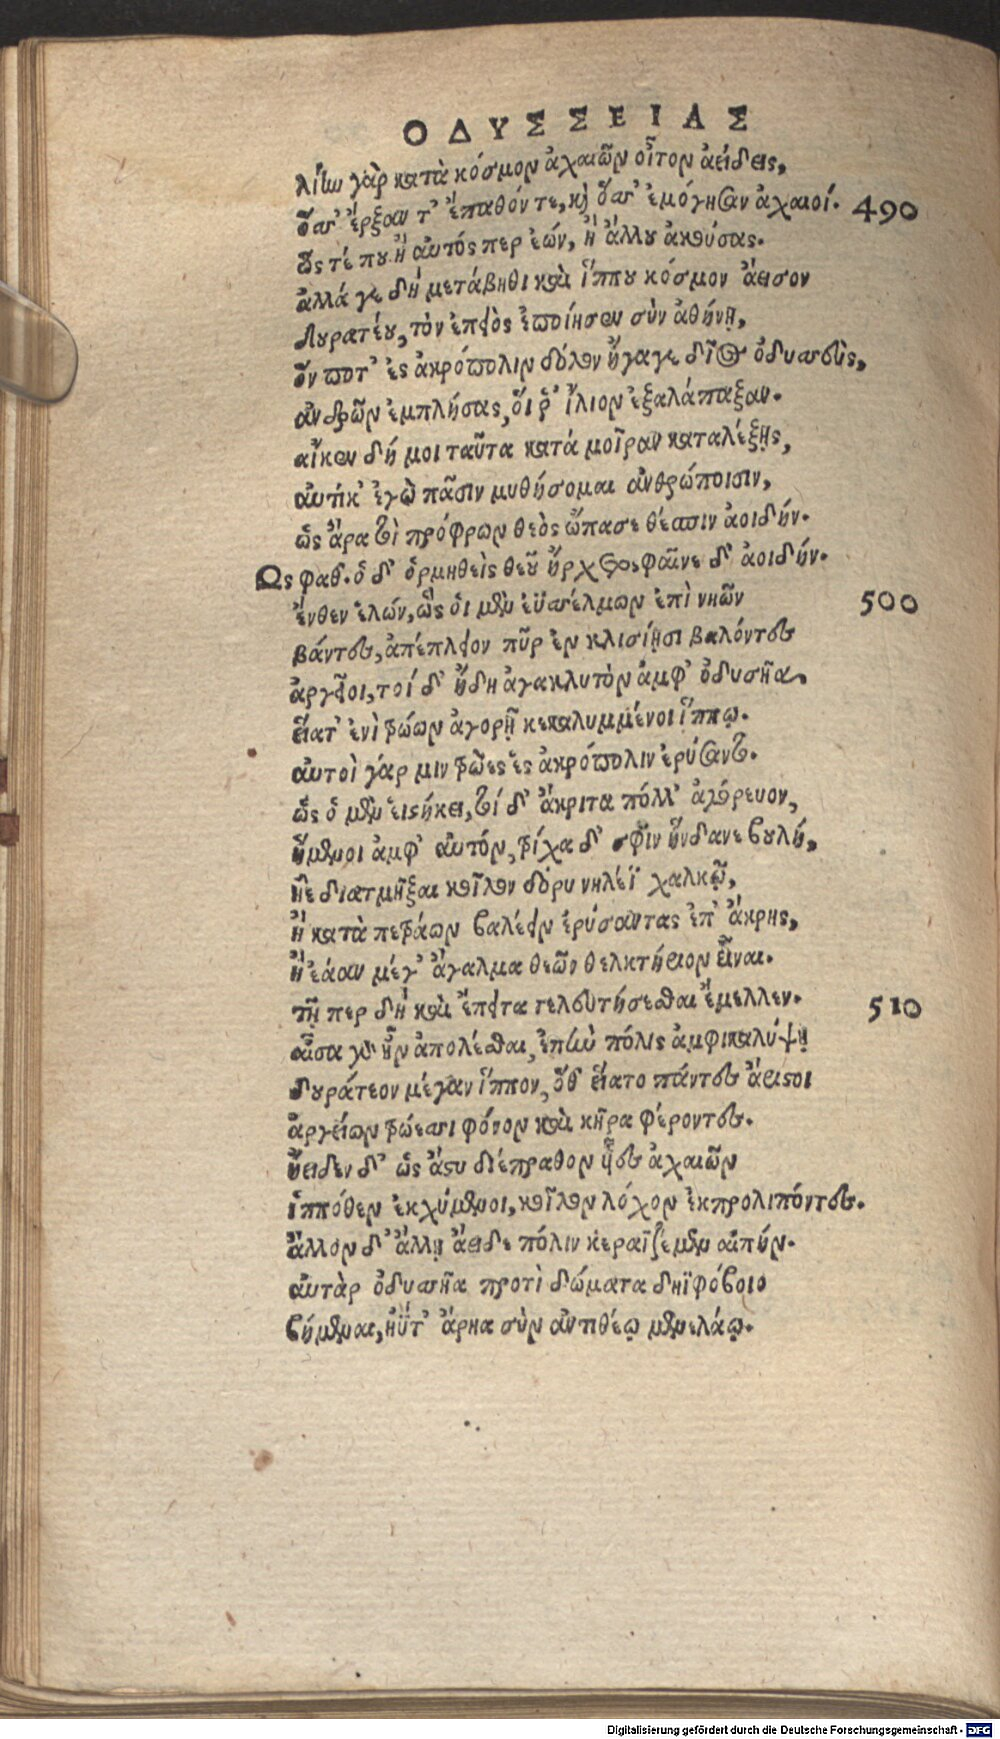 ΟΔΥΣΣΕΙΑΣ
λίω γὰρ κατὰ κόσμον ἀχαιῶν οἶτον ἀείδεις,
ὅσσ' ἔρξαν τ' ἔπαθόν τε, κὶ ὅσσ' ἐμόγησαν ἀχαιοί. 490
ὥς τέ που ἢ αὐτός περ ἐών, ἢ ἄλλου ἀκούσας.
ἀλλά γε δὴ μετάβηθι καὶ ἵππου κόσμον ἄεισον
δουρατέου, τὸν ἐπειὸς ἐποίησεν σὺν ἀθήνῃ,
ὅν ποτ' ἐς ἀκρόπολιν δόλον ἤγαγε δῖος ὀδυσσεὺς,
ἀνδρῶν ἐμπλήσας, οἵ ῥ' ἴλιον ἐξαλάπαξαν.
αἴκεν δή μοι ταῦτα κατά μοῖραν καταλέξῃς,
αὐτίκ' ἐγὼ πᾶσιν μυθήσομαι ἀνθρώποισιν,
ὡς ἄρα τοὶ πρόφρων θεὸς ὤπασε θέσσιν ἀοιδήν.
Ὣς φαθ'. ὁ δ' ὁρμηθεὶς θεοῦ ἤρχετο, φαῖνε δ' ἀοιδήν.
ἔνθεν ἑλών, ὡς οἱ μὲν ἐϋσσέλμων ἐπὶ νηῶν 500
βάντες, ἀπέπλειον πῦρ ἐν κλισίῃσι βαλόντες
ἀργεῖοι, τοί δ' ἤδη ἀγακλυτὸν ἀμφ' ὀδυσῆα,
εἵατ' ἐνὶ τρώων ἀγορῇ κεκαλυμμένοι ἵππῳ.
αὐτοὶ γάρ μιν τρῶες ἐς ἀκρόπολιν ἐρύσαντο.
ὣς ὁ μὲν εἱστήκει, τοί δ' ἄκριτα πόλλ' ἀγόρευον,
ἥμενοι ἀμφ' αὐτόν, τρίχα δ' σφιν ἥνδανε βουλή,
ἠὲ διατμῆξαι κοῖλον δόρυ νηλέϊ χαλκῷ,
ἢ κατὰ πετράων βαλέειν ἐρύσαντας ἐπ' ἄκρης,
ἢ ἐάαν μέγ' ἄγαλμα θεῶν θελκτήριον εἶναι.
τῇ περ δὴ καὶ ἔπειτα τελευτήσεσθαι ἔμελλεν. 510
αἶσα γὰρ ἦν ἀπολέσθαι, ἐπὴν πόλις ἀμφικαλύψῃ
δουράτεον μέγαν ἵππον, ὅθ' εἵατο πάντες ἄριστοι
ἀργείων τρώεσσι φόνον καὶ κῆρα φέροντες.
ἤειδεν δ' ὡς ἄστυ διέπραθον υἷες ἀχαιῶν
ἱππόθεν ἐκχύμενοι, κοῖλον λόχον ἐκπρολιπόντες.
ἄλλον δ' ἄλλῃ ἄειδε πόλιν κεραϊζέμεν αἰπήν.
αὐτὰρ ὀδυσσῆα προτὶ δώματα δηϊφόβοιο
βήμεναι, ἠΰτ' ἄρηα σὺν ἀντιθέῳ μενελάῳ.
Digitalisierung gefördert durch die Deutsche Forschungsgemeinschaft - DFG